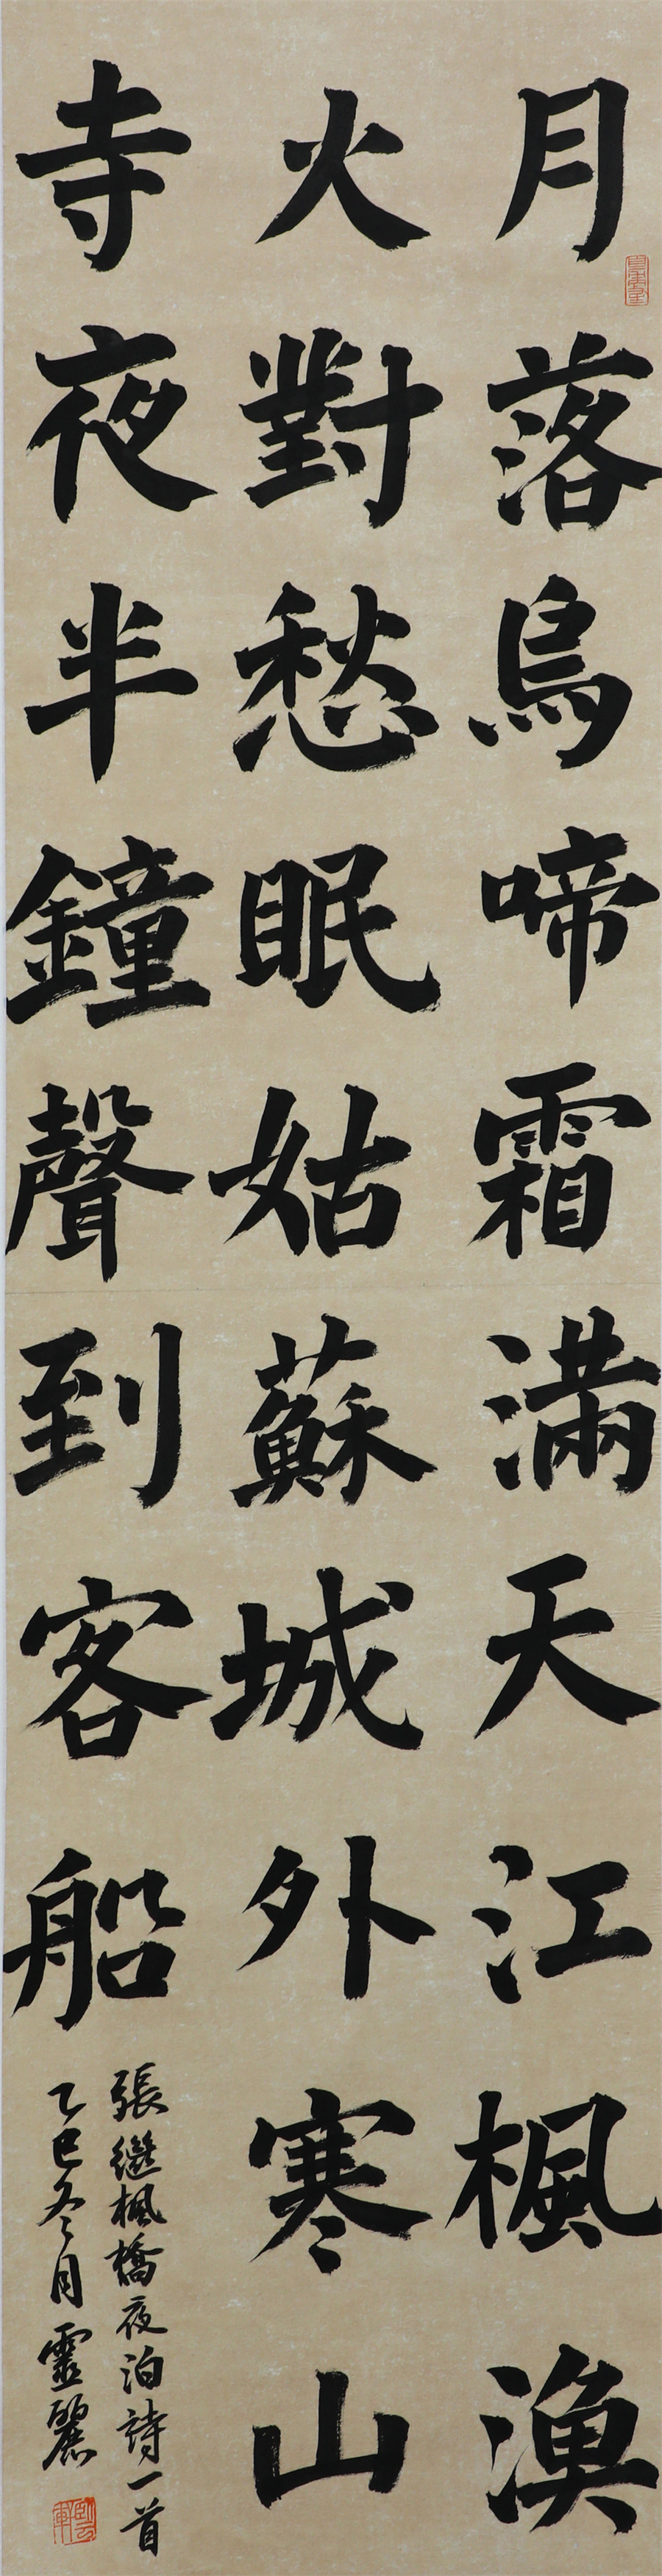 月落烏啼霜滿天江楓漁
火對愁眠姑蘇城外寒山
寺夜半鐘聲到客船
張繼楓橋夜泊詩一首
乙巳冬月靈麗